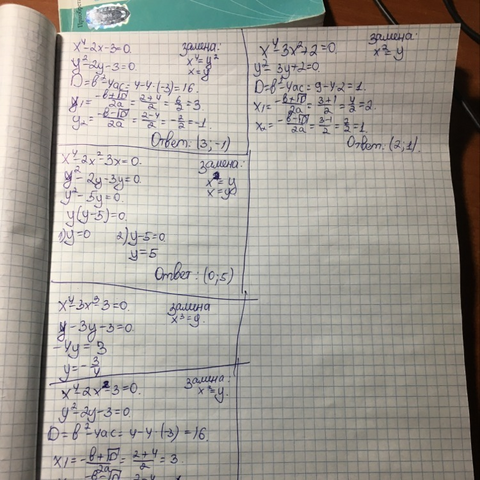 x⁴-2x-3=0. замена:
x⁴=y²
y²-2y-3=0. x=y
D=b²-4ac=4-4·(-3)=16.
y₁=-b+√D/2a=2+4/2=6/2=3
y₂=-b-√D/2a=2-4/2=-2/2=-1.
Ответ: (3;-1)
x⁴-2x²-3x=0. замена:
x²=y
y²-2y-3y=0. x=y
y²-5y=0.
y(y-5)=0.
1)y=0 2)y-5=0
y=5
Ответ: (0;5)
x⁴-3x³-3=0. замена
x³=y.
y-3y-3=0.
-4y=3
y=-3/4
x⁴-2x²-3=0. замена:
x²=y.
y²-2y-3=0
D=b²-4ac=4-4·(-3)=16.
x₁=-b+√D/2a=2+4/2=3.
x⁴-3x²+2=0. замена:
x²=y
y²-3y+2=0.
D=b²-4ac=9-4·2=1.
x₁=-b+√D/2a=3+1/2=4/2=2.
x₂=-b-√D/2a=3-1/2=2/2=1.
Ответ: (2;1).